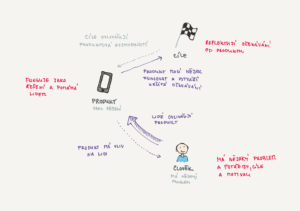 CÍLE OVLIVŇUJÍ
PRODUKTOVÁ ROZHODNUTÍ
CÍLE
REFLEKTUJÍ OČEKÁVÁNÍ
PO PRODUKTU
PRODUKT MUSÍ NĚJAK
FUNGOVAT A VYTVÁŘÍ
URČITÁ OČEKÁVÁNÍ
FUNGUJE JAKO
ŘEŠENÍ A POMÁHÁ
LIDEM
PRODUKT
JAKO ŘEŠENÍ
LIDÉ OVLIVŇUJÍ
PRODUKT
PRODUKT MÁ VLIV
NA LIDI
ČLOVĚK
MÁ NĚJAKÝ
PROBLÉM
MÁ NĚJAKÝ PROBLÉM
A POTŘEBY, CÍLE
A MOTIVACI